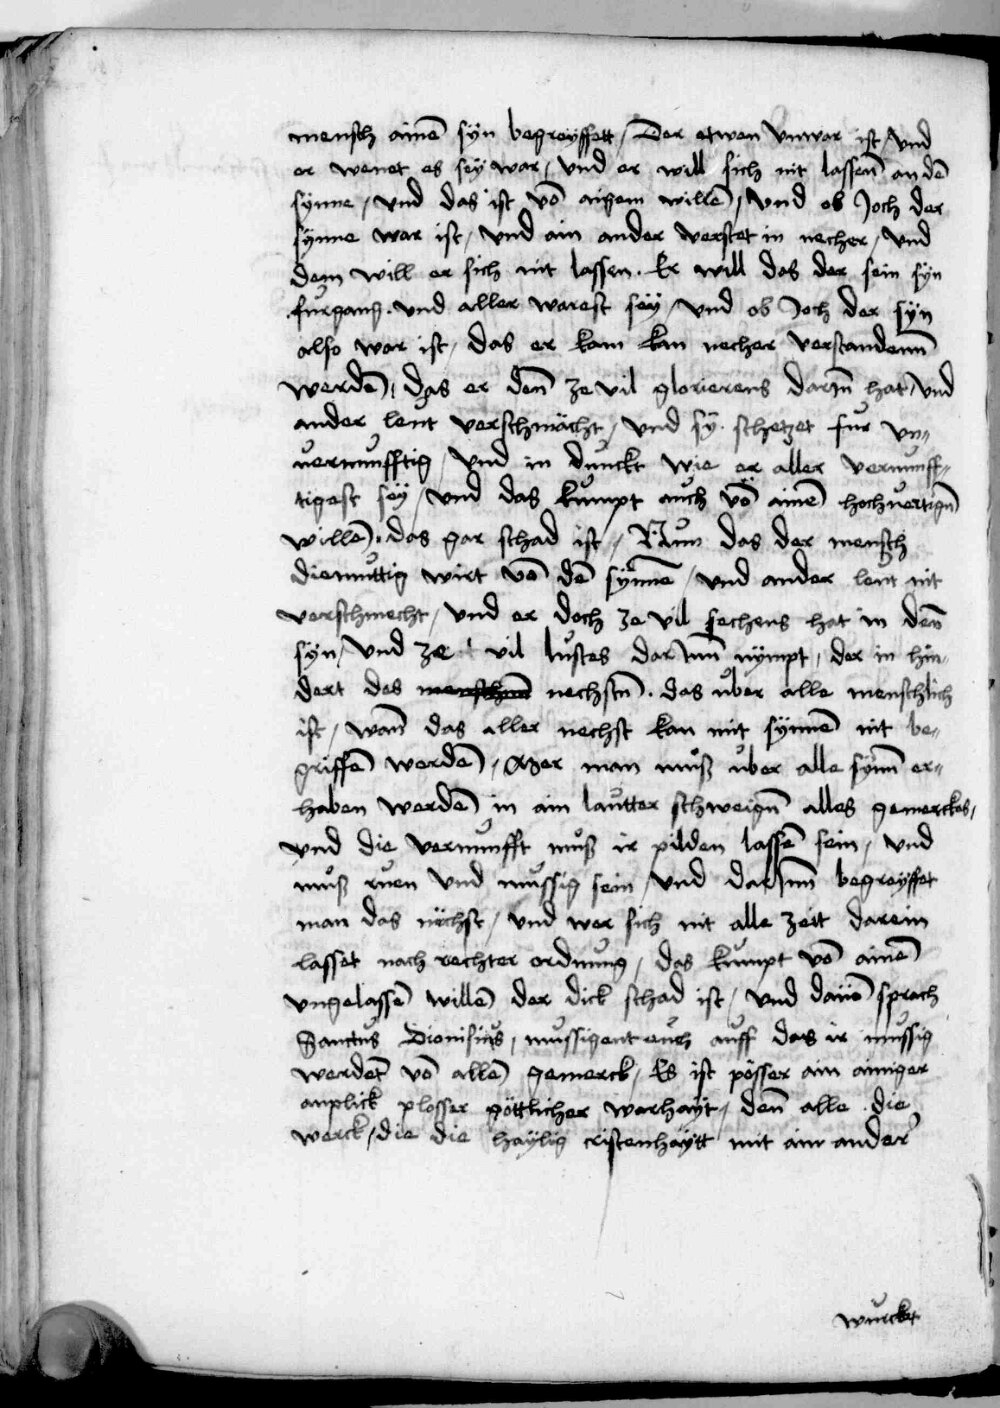 mensch ainē syn begreyffett / Der etwen vnwar ist / vnd
er wenet es sey war / vnd er will sich nit lassen̄ an dē
synne / vnd das ist vō aigem willē / vnd ob Joch der
synne war ist / vnd ain ander verstet in necher / vnd
dem will er sich nit lassen. Er will das der sein syn
furgang. vnd aller warest sëy / vnd ob Joch der sÿn
also war ist / das er kam kan necher verstandenn̄
werdē / das er den̄ ze vil glorierens darJn̄ hat / vnd
ander leut verschmächt / vnd sÿ schetzet fur vn„
vernunfftig / vnd in dunckt wie er aller vernunff„
tigest sëÿ / vnd das kumpt auch vō ainē hochuertign̄
willē. das gar schad ist / Nun das der mensch
diemuttig wirt vō dē synne / vnd ander leut nit
verschmecht / vnd er doch ze vil sechens hat in den̄
syn / vnd ze vil lustes darJnn̄ nÿmpt / der in hin„
dert des nechstn̄. das uber alle menschlich
ist / wan̄ das aller nechst kan mit synnē nit be„
griffē werdē / Aber man muß uber alle synn̄ er„
haben werdē in ain lautter schweign̄ alles gemerckes,
vnd die vernunfft muß ir pilden lassē sein / vnd
muß ruen vnd mussig sein / vnd darJnn̄ begreyffet
man das nächst / vnd wer sich nit alle zeitt darein
lasset nach rechter ordnung / das kumpt vō ainē
vngelassē willē der dick schad ist / vnd dauō sprach
Sanctus Dionisius / mussigent euch auff das ir mussig
werdet vō allē gemerck / Es ist pösser ain ainiger
anplick plosser göttlicher warhaÿt / den̄ alle die
werck / die die haÿlig cristenhaÿtt mit ain ander
wurckt